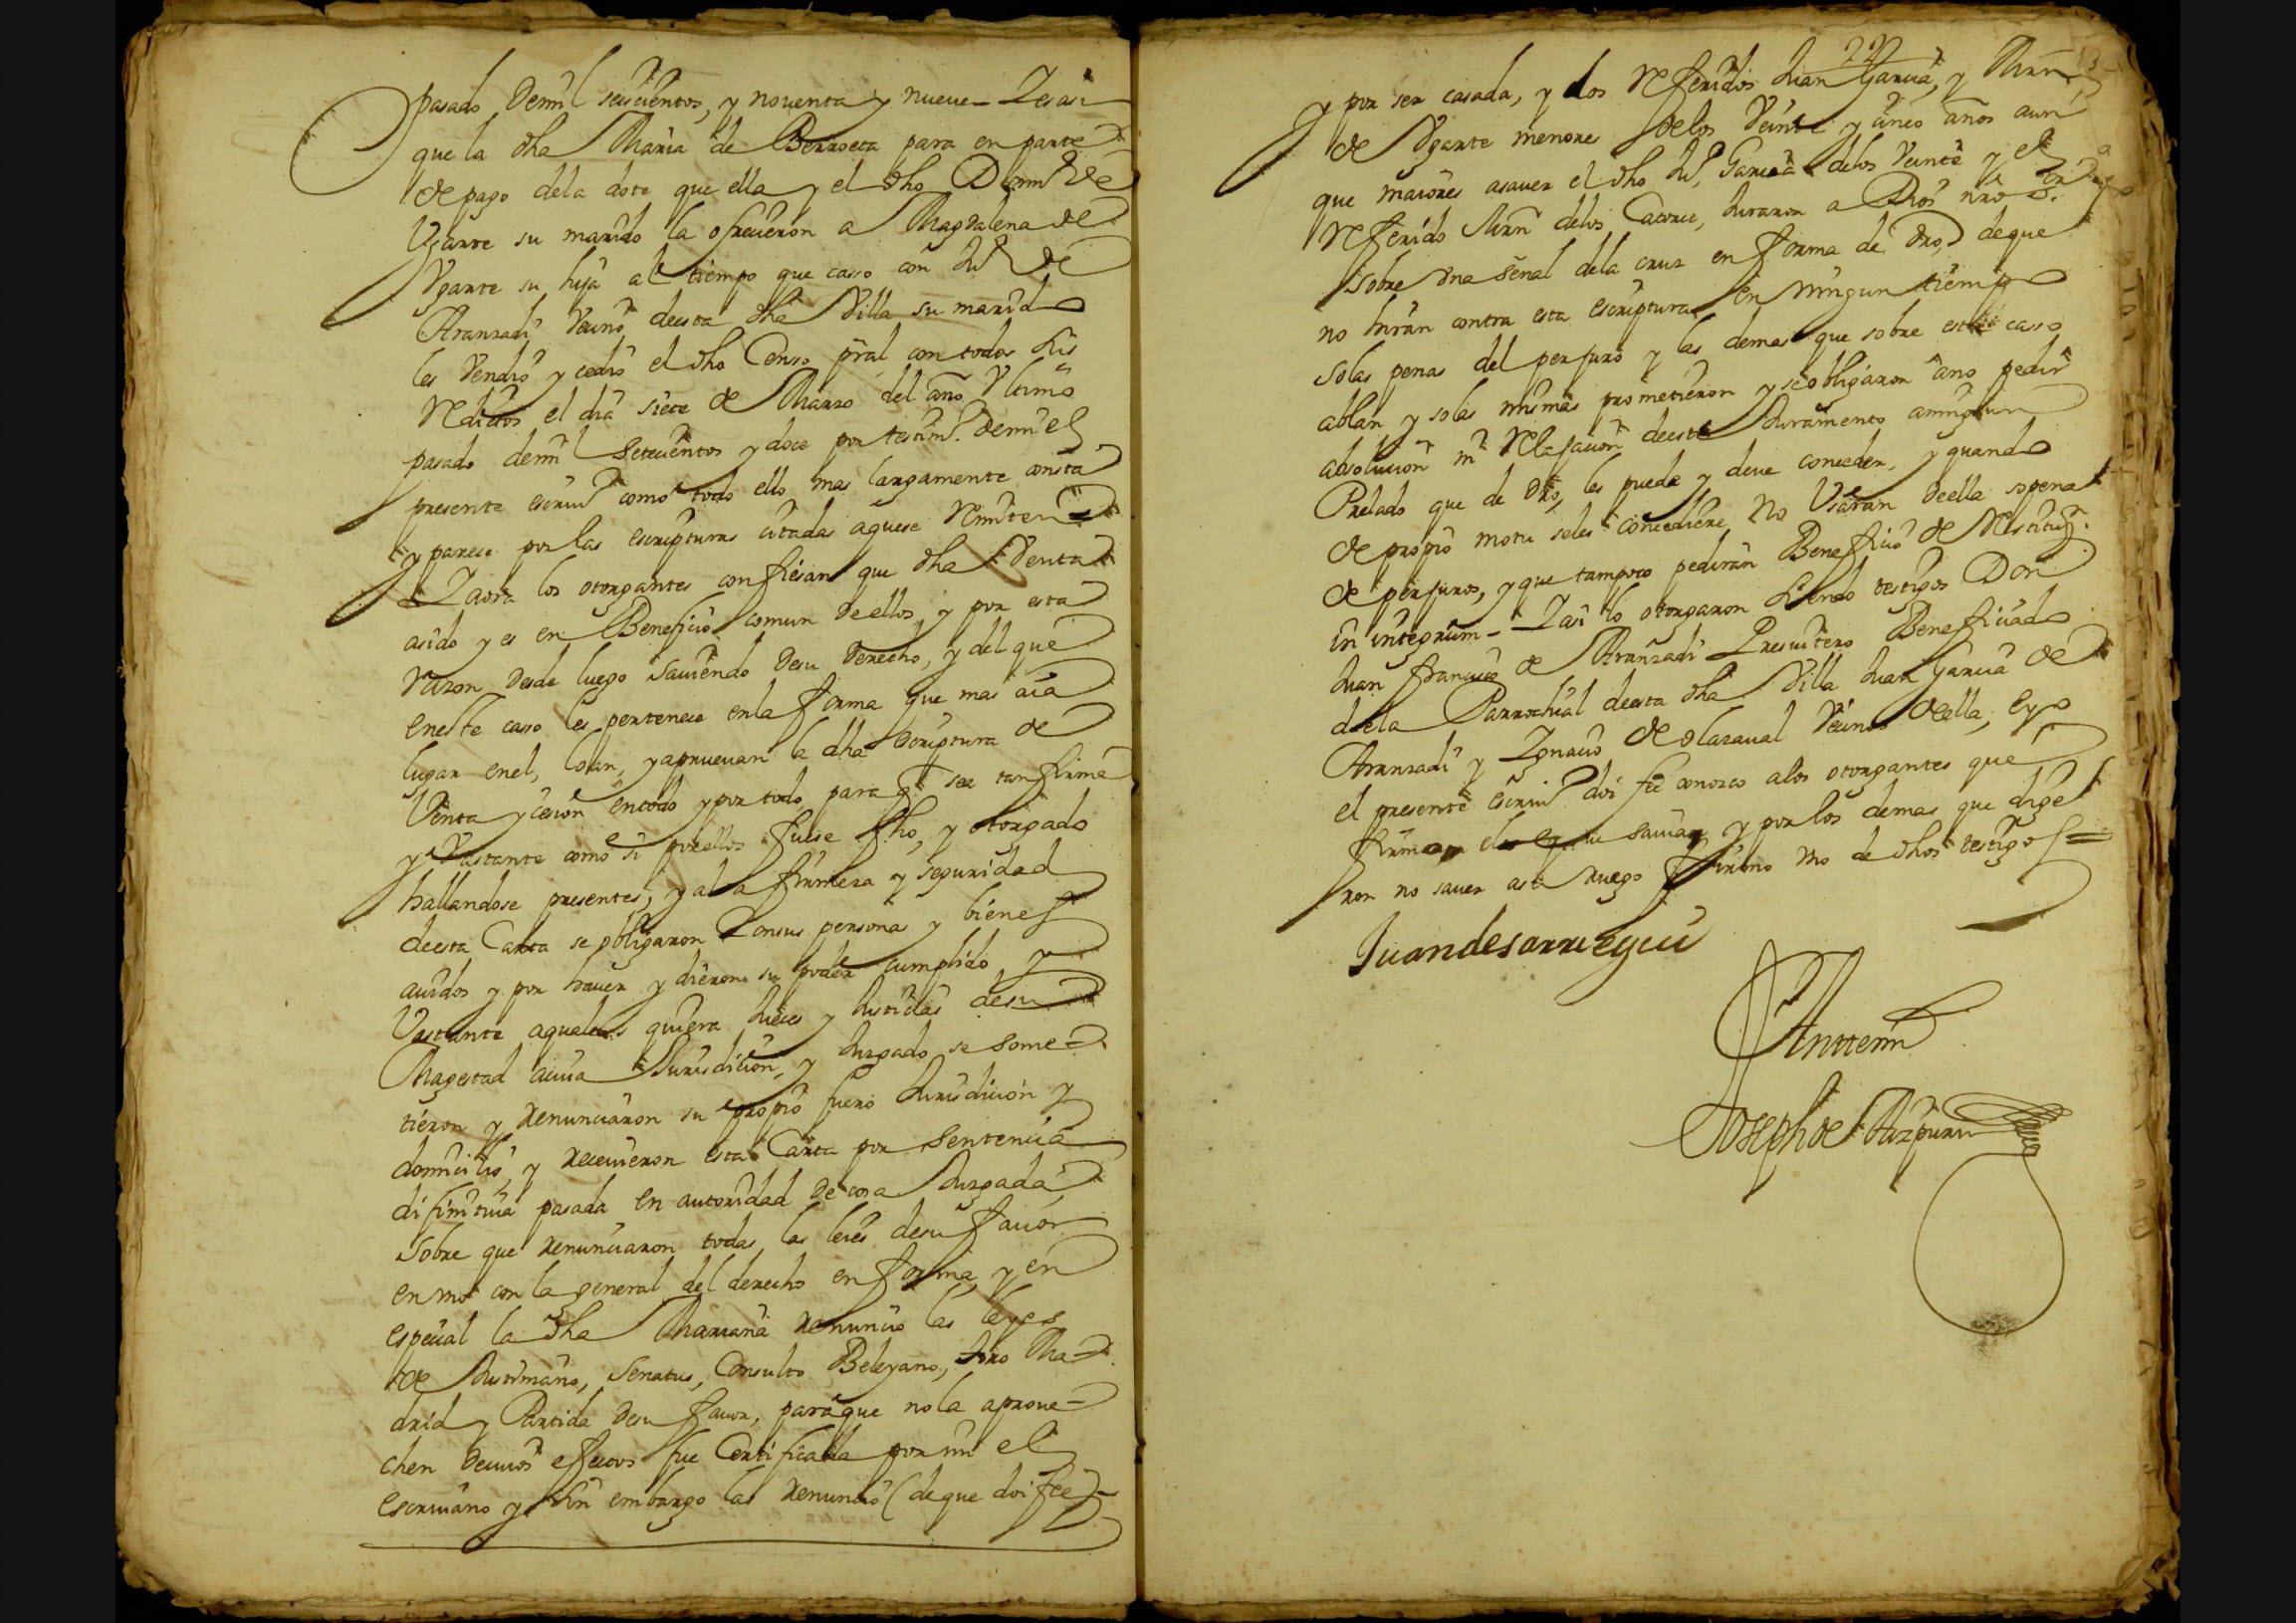 pasado demil seiscientos, y noventa y nueve = Y es asi
que la dha Maria de Berroeta para en parte
de pago dela dote que ella y el dho Dom.º de
Ugarte su marido la ofrecieron a Magdalena de
Ugarte su hija al tiempo que casso con Ju.º de
Aranzadi vecino deesta dha Villa su marido
les vendio y cedio el dho Censo pral con todos sus
Reditos el dia siete de Marzo del año ultimo
pasado demil setecientos y doce por testim.º demi el
presente escriu.º como todo ello mas largamente consta
y parece por las escripturas citadas aquese Remiten =
Y aora los otorgantes confiesan que dha Venta
asido y es en Beneficio comun de ellos, y por esta
razon desde luego Saviendo desu derecho, y del que
eneste casso les pertenece enla forma que mas aia
lugar enel, loan, y apruevan la dha escriptura de
Venta y cesion entodo y por todo para q sea tan firme
y Vastante como si por ellos fuese fho, y otorgado
hallandose presentes, y ala firmeza y seguridad
deesta Carta se obligaron Consus persona y bienes
auidos y por hauer y dieron su poder cumplido y
Vastante aqualesquiera Jueces y Justicias desu
Magestad acuia Jurisdicion, y Juzgado se some=
tieron y renunciaron su propio fuero Jurisdicion y
domicilio, y recivieron esta Carta por sentencia
difinitiua pasada en autoridad de cosa Juzgada
Sobre que renunciaron todas las leies desu fauor
en uno con la general del derecho en forma, y en
especial la dha Mariana renuncio las leyes
de Justiniano, Senatus, Consulto Beleyano, toro Ma=
drid y Partida desu fauor, para que no la aprove=
chen de cuios efectos fue Certificada por mi el
escriuano y sin embargo las renuncio (de que doi fee)
y por ser casada, y los Referidos Juan Garcia, y Mrn
de Ugarte menores delos Veinte y cinco años aun
que maiores asauer el dho Ju.º Garcia delos Veinte y el
Referido Mrn delos Catorce, Juraron a Dios nro S.or
Sobre una señal dela cruz en forma de dro, de que
no hiran contra esta escriptura en ningun tiempo
solas penas del perjuro y las demas que sobre este casso
ablan y solas mismas prometieron y se obligaron ano pedir
absolucion ni Relajacion deeste Juramento aningun
Prelado que de dro les puede y deve conceder, y quando
de propio motu seles concediere no Usaran deella sopena
de perjuros, y que tampoco pediran Beneficio de Restituz.on
in integrum = Y asi lo otorgaron Siendo testigos Don
Juan francisco de Aranzadi Presuitero Beneficiado
dela Parrochial deesta dha Villa Juan Garcia de
Aranzadi y Ygnacio de Olazaual Vecinos deella, e yo
el presente escriu.º doi fee conozco alos otorgantes que
firmo el que sauia, y por los demas que dige
ron no sauer asu ruego firmo uno de dhos testigos =
Juan de sarruegui
Antemi
Joseph de Aizpuru